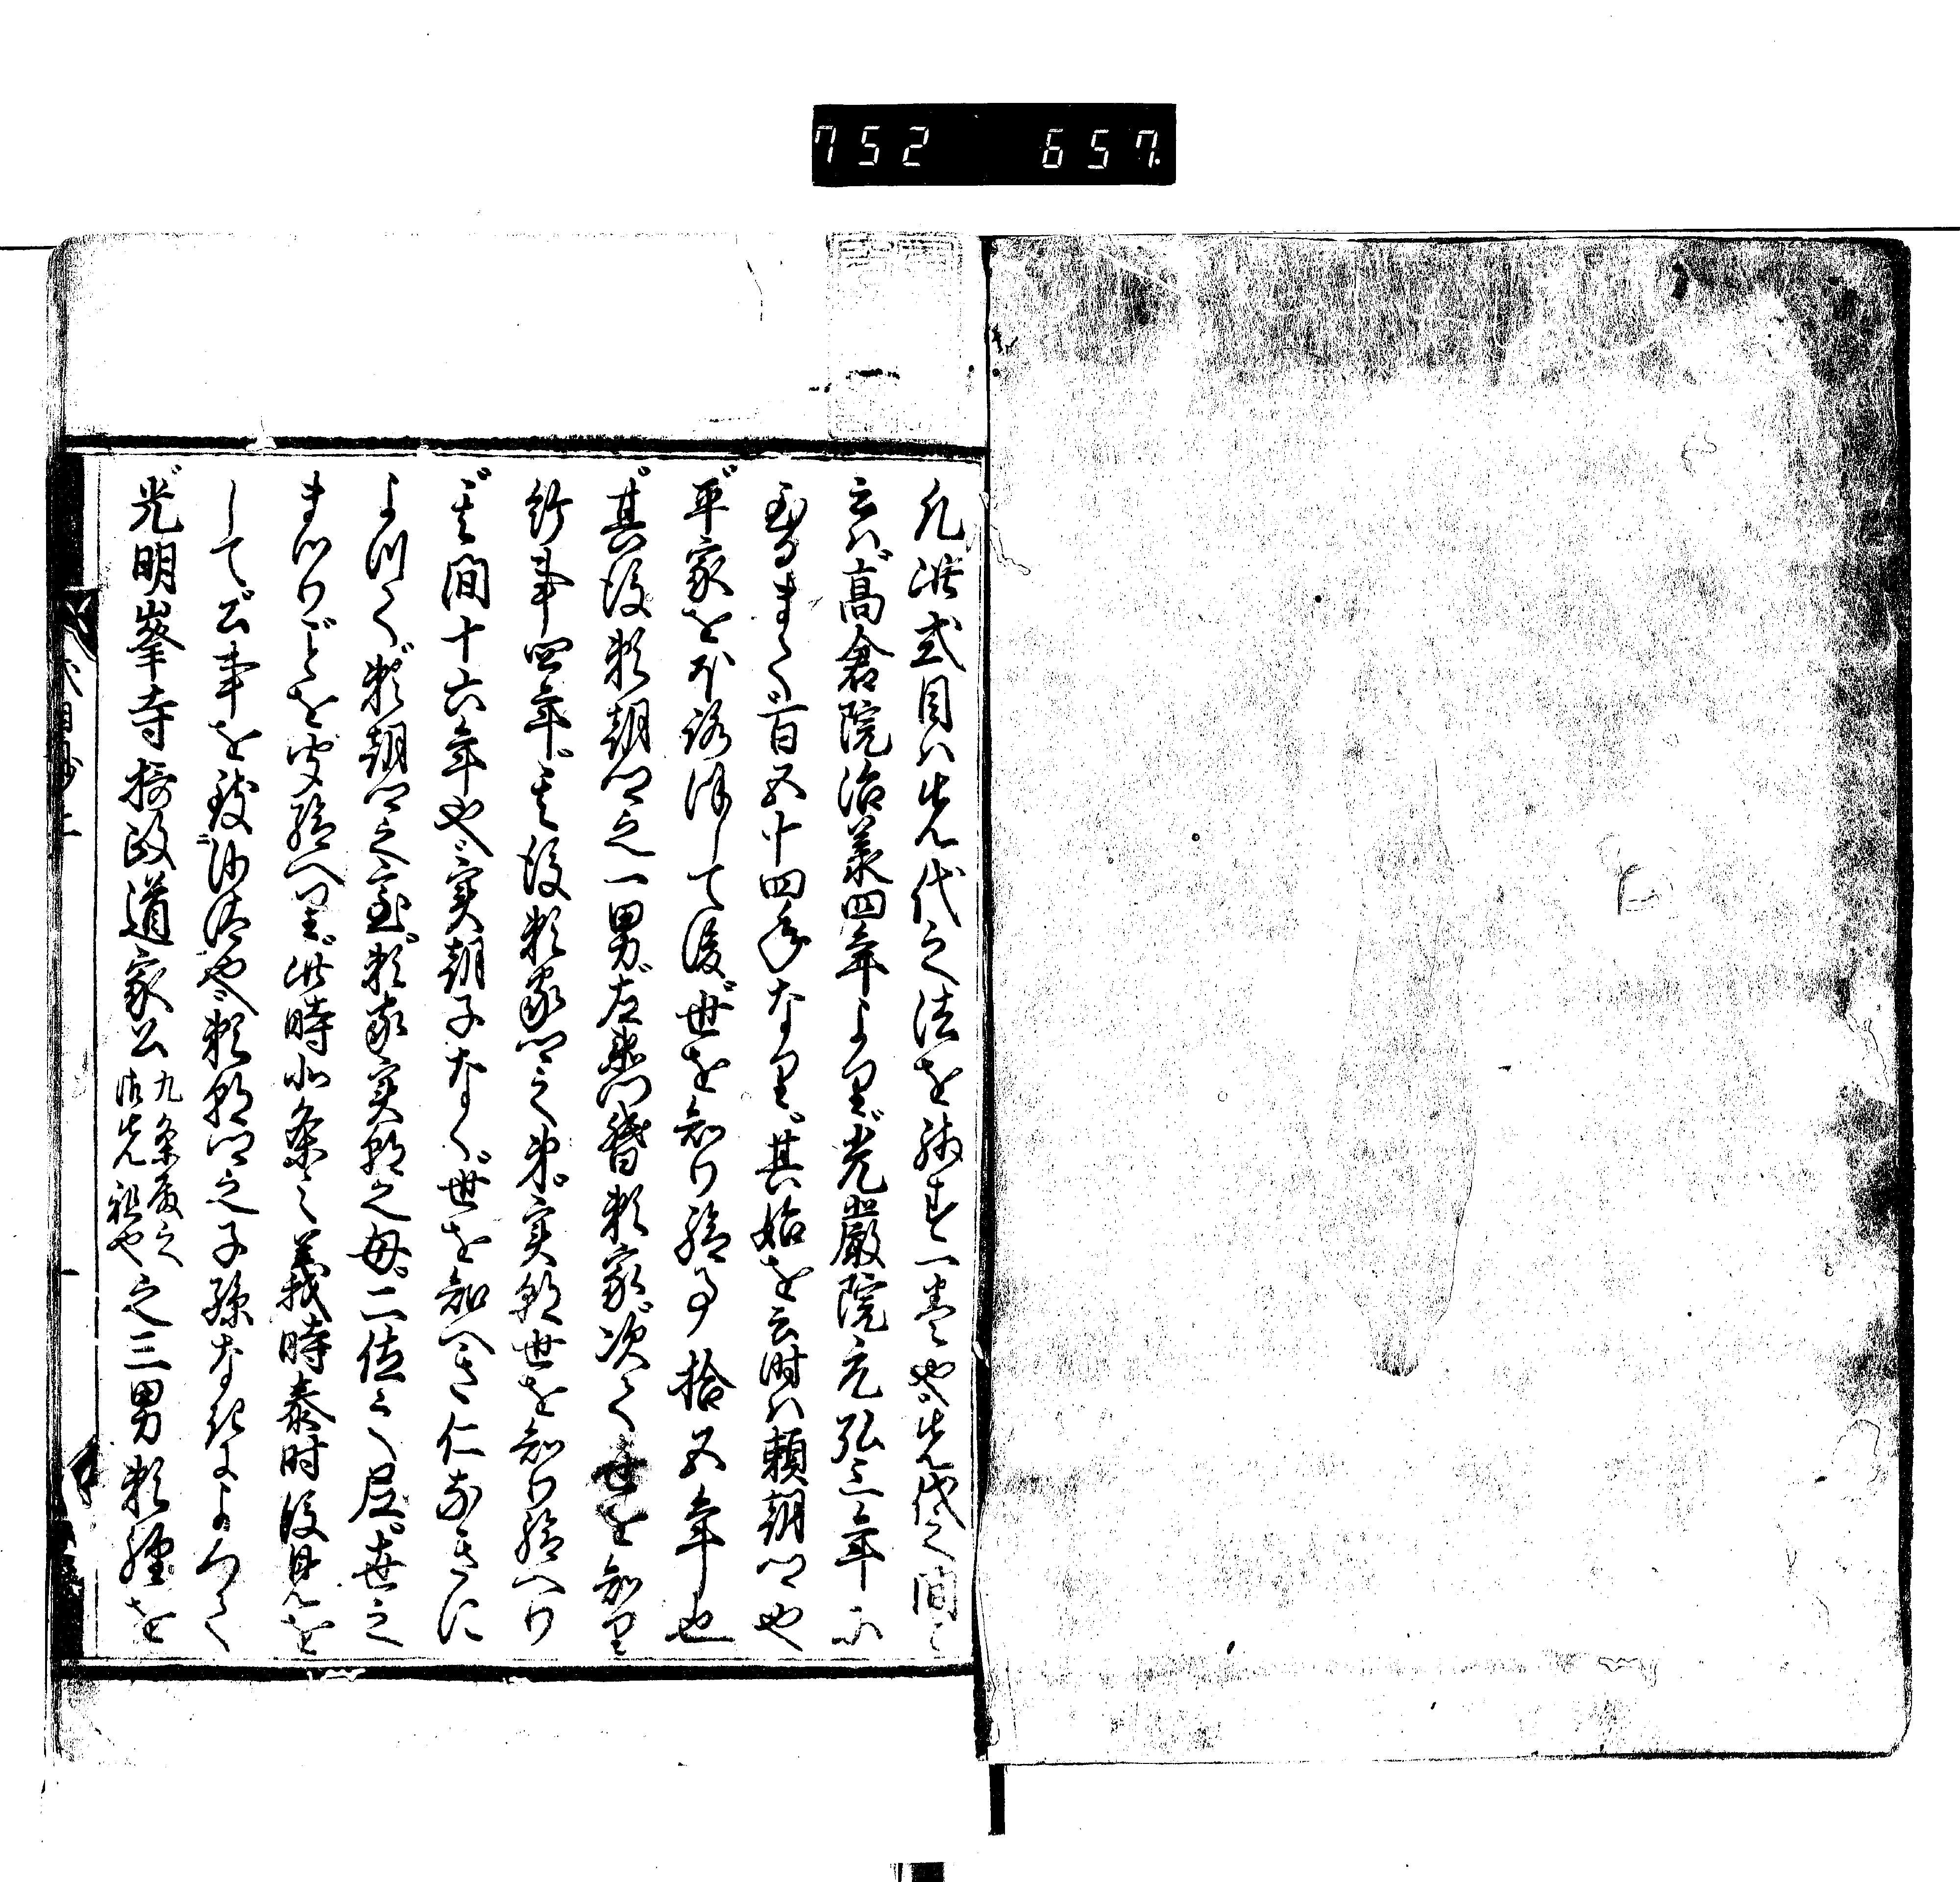 752 657
凡此式目ハ先代之法を絲す一巻也先代之間と
云ハ高倉院治承四年より光嚴院元弘三年ニ
至るまて百五十四年なり其始を云時ハ頼朝公也
平家をほろほして後世を知り給事拾五年也
其後頼朝公之一男左衛門督頼家次て世を知り
行事四年其後頼家公之弟実朝世を知り給へり
其間十六年也実朝子なく世を知へき仁なきに
よつて頼朝公之室頼家実朝之母二位之尼世之
まつりことを聞給へり此時北条之義時泰時後見を
して公事を致沙汰也頼朝公之子孫なきによつて
光明峯寺摂政道家公九条殿之御先祖也之三男頼経を